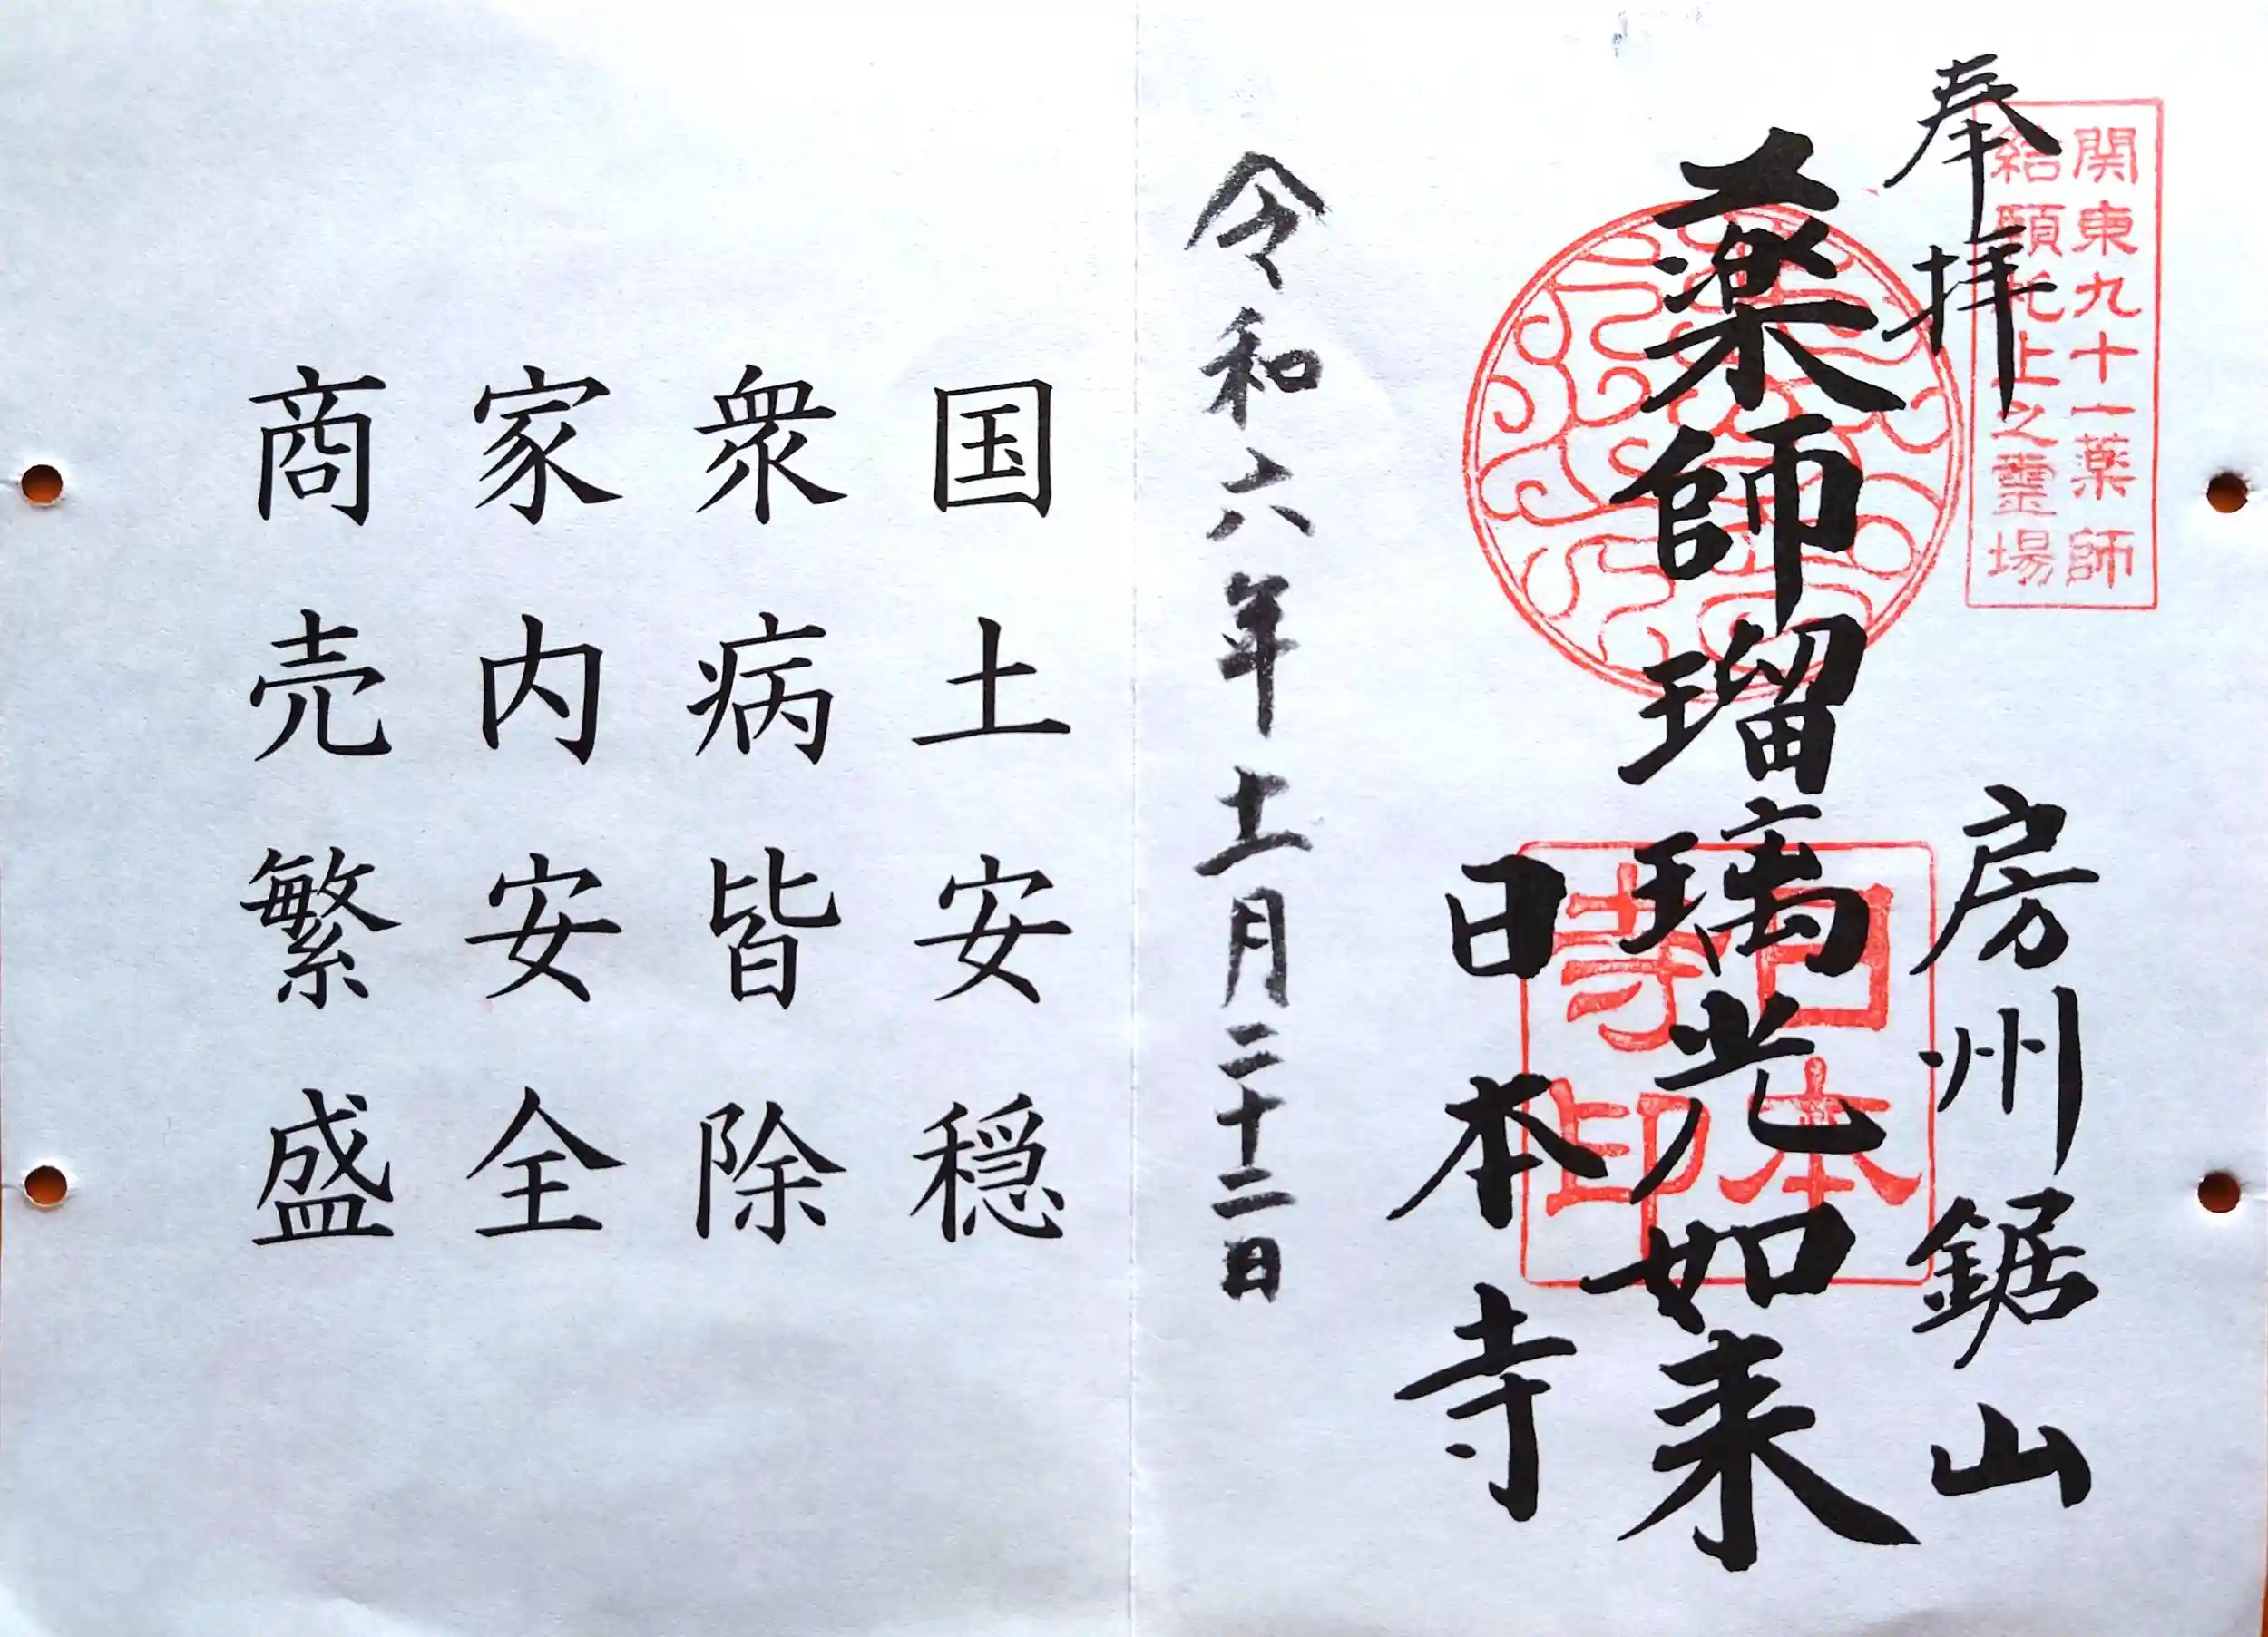 関東九十一薬師
結願札止之靈場
奉拝
房州鋸山
薬師瑠璃光如来
日本寺
日本
寺印
令和六年十一月二十二日
国土安穏
衆病皆除
家内安全
商売繁盛